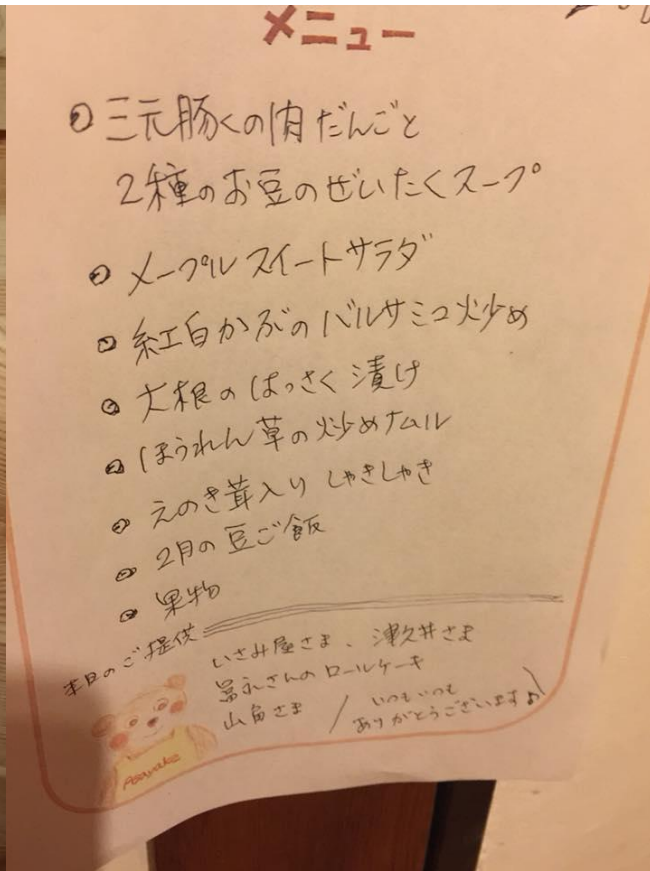 メニュー
三元豚くの肉だんごと
2種のお豆のぜいたくスープ
メープルスイートサラダ
紅白かぶのバルサミコ炒め
大根のはっさく漬け
ほうれん草の炒めナムル
えのき茸入りしゃきしゃき
2月の豆ご飯
果物
本日のご提供
いさみ屋さま、津久井さま
冨永さんのロールケーキ
さま / いつもいつも
ありがとうございます♪
Asayake